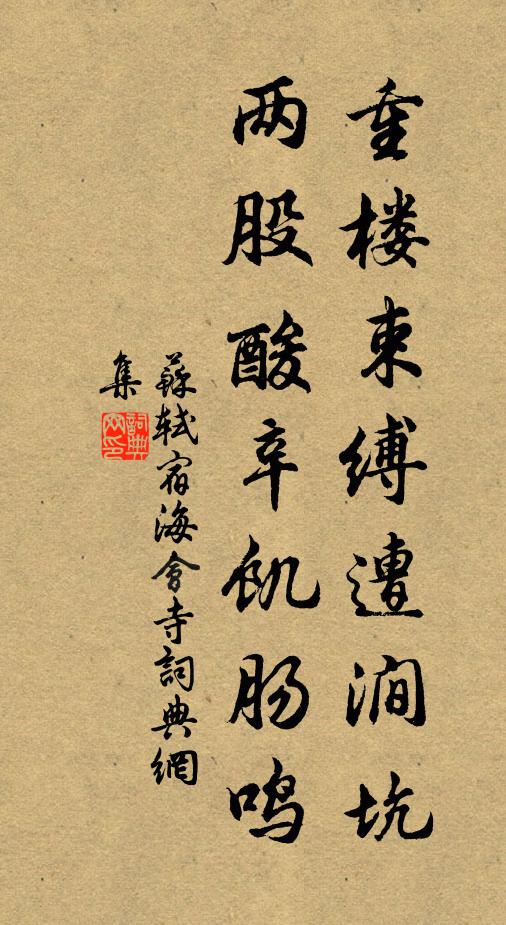 重楼束缚遭涧坑
两股酸辛饥肠鸣
蘇軾宿海會寺詞典網
集
詞典网印